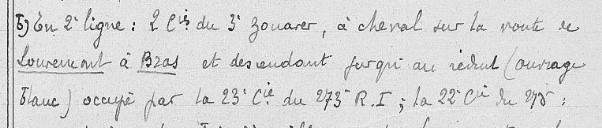 b) En 2e ligne : 2 Cies du 3e Zouaves, à cheval sur la route de
Louvemont à Bras et descendant jusqu'au réduit (ouvrage
blanc) occupé par la 23e Cie du 273e R.I ; la 22e Cie du 273e :